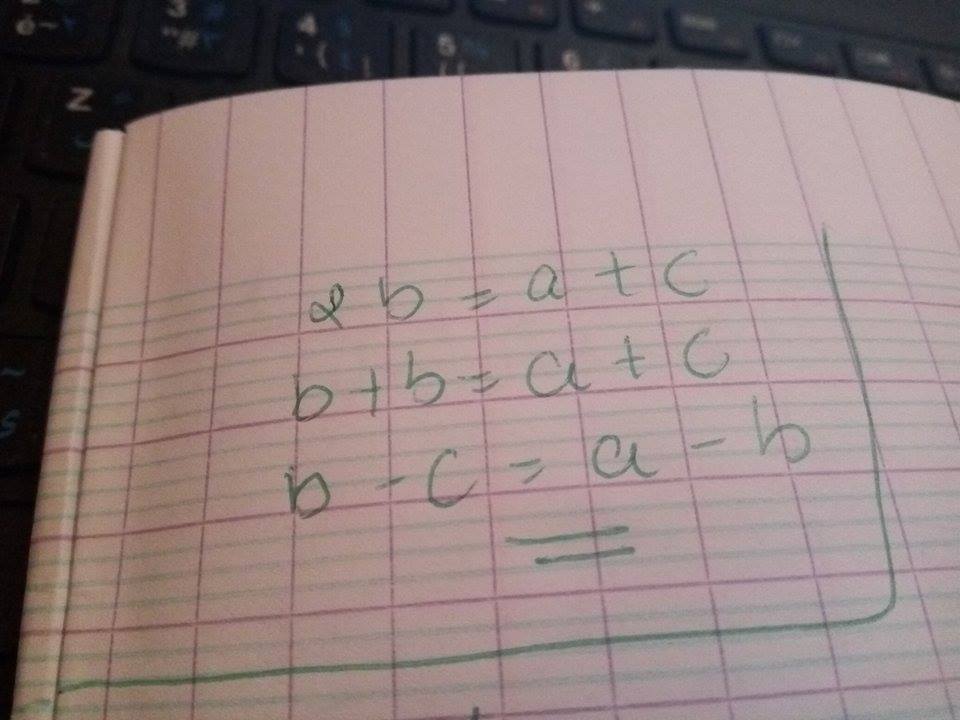 2b = a + c
b + b = a + c
b - c = a - b